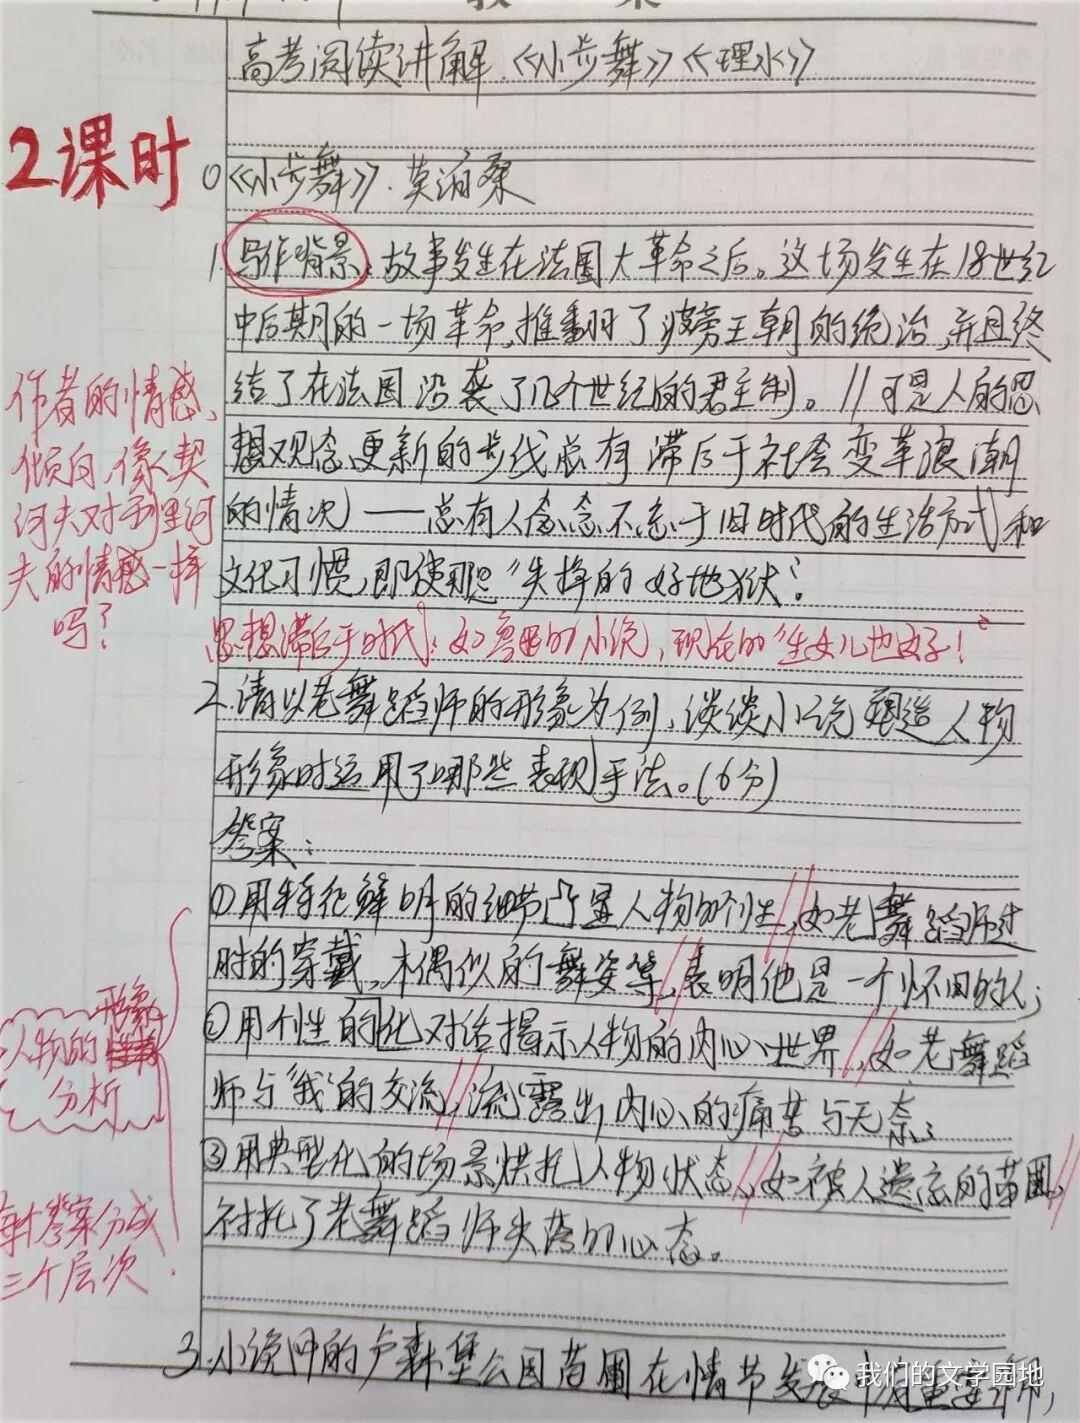 教 案
高考阅读讲解《小步舞》《理水》
2课时
《小步舞》.莫泊桑
1.写作背景:故事发生在法国大革命之后。这场发生在18世纪
中后期的一场革命,推翻了波旁王朝的统治,并且终
结了在法国沿袭了几个世纪的君主制。//可是人的思
想观念更新的步线总有滞后于社会变革浪潮
的情况——总有人念念不忘于旧时代的生活方式和
文化习惯,即使那是“失掉的好地狱”.
作者的情感,
倾向,像契
诃夫对别里科
夫的情感一样
吗?
思想滞后于时代:如鲁迅的小说,现在的“生女儿也好!”
2.请以老舞蹈师的形象为例,谈谈小说塑造人物
形象时运用了哪些表现手法。(6分)
答案:
①用特征鲜明的细节凸显人物的个性,//如老舞蹈师过
时的穿戴、木偶似的舞姿等,//表明他是一个怀旧的人;
②用个性的化对话揭示人物的内心世界,//如老舞蹈
师与“我”的交流,//流露出内心的痛苦与无奈;
③用典型化的场景烘托人物状态,//如被人遗忘的苗圃,//
衬托了老舞蹈师失落的心态。
人物的形象
分析
每个答案分成
三个层次.
3.小说中的卢森堡公园苗圃在情节发展中有重要作用,
我们的文学园地